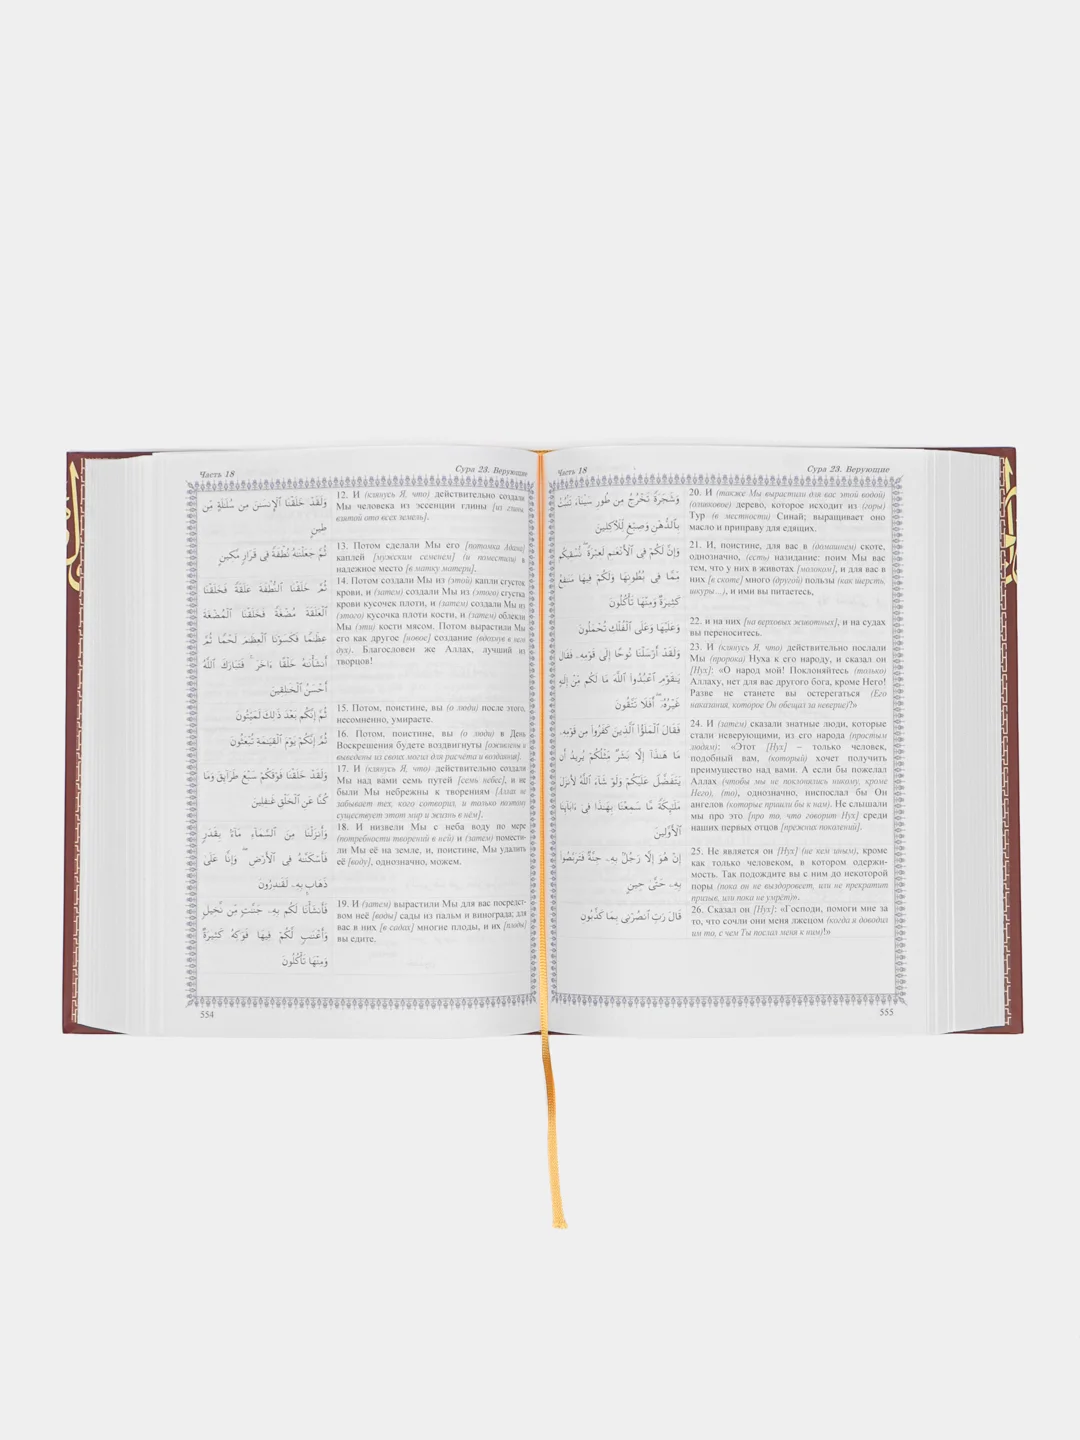 Часть 18
Сура 23. Верующие
وَلَقَدْ خَلَقْنَا ٱلْإِنسَـٰنَ مِن سُلَـٰلَةٍ مِّن
طِينٍ
12. И (клянусь Я, что) действительно создали
Мы человека из эссенции глины [из глины
взятой ото всех земель].
ثُمَّ جَعَلْنَـٰهُ نُطْفَةً فِى قَرَارٍ مَّكِينٍ
13. Потом сделали Мы его [потомка Адама]
каплей [мужским семенем] (и поместили) в
надежное место [в матку матери].
ثُمَّ خَلَقْنَا ٱلنُّطْفَةَ عَلَقَةً فَخَلَقْنَا
ٱلْعَلَقَةَ مُضْغَةً فَخَلَقْنَا ٱلْمُضْغَةَ
عِظَـٰمًا فَكَسَوْنَا ٱلْعِظَـٰمَ لَحْمًا ثُمَّ
أَنشَأْنَـٰهُ خَلْقًا ءَاخَرَ ۚ فَتَبَارَكَ ٱللَّهُ
أَحْسَنُ ٱلْخَـٰلِقِينَ
14. Потом создали Мы из (этой) капли сгусток
крови, и (затем) создали Мы из (этого) сгустка
крови кусочек плоти, и (затем) создали Мы из
(этого) кусочка плоти кости, и (затем) облекли
Мы (эти) кости мясом. Потом вырастили Мы
его как другое [новое] создание (вдохнув в него
дух). Благословен же Аллах, лучший из
творцов!
ثُمَّ إِنَّكُم بَعْدَ ذَٰلِكَ لَمَيِّتُونَ
15. Потом, поистине, вы (о люди) после этого,
несомненно, умираете.
ثُمَّ إِنَّكُمْ يَوْمَ ٱلْقِيَـٰمَةِ تُبْعَثُونَ
16. Потом, поистине, вы (о люди) в День
Воскрешения будете воздвигнуты [оживлены и
выведены из своих могил для расчета и воздаяния].
وَلَقَدْ خَلَقْنَا فَوْقَكُمْ سَبْعَ طَرَآئِقَ وَمَا
كُنَّا عَنِ ٱلْخَلْقِ غَـٰفِلِينَ
17. И (клянусь Я, что) действительно создали
Мы над вами семь путей [семь небес], и не
были Мы небрежны к творениям [Аллах не
забывает тех, кого сотворил, и только поэтому
существует этот мир и жизнь в нём].
وَأَنزَلْنَا مِنَ ٱلسَّمَآءِ مَآءًۢ بِقَدَرٍ
فَأَسْكَنَّـٰهُ فِى ٱلْأَرْضِ ۖ وَإِنَّا عَلَىٰ
ذَهَابٍۭ بِهِۦ لَقَـٰدِرُونَ
18. И низвели Мы с неба воду по мере
(потребности творений в ней) и (затем) помести-
ли Мы её на земле, и, поистине, Мы удалить
её [воду], однозначно, можем.
فَأَنشَأْنَا لَكُم بِهِۦ جَنَّـٰتٍ مِّن نَّخِيلٍ
وَأَعْنَـٰبٍ لَّكُمْ فِيهَا فَوَٰكِهُ كَثِيرَةٌ
وَمِنْهَا تَأْكُلُونَ
19. И (затем) вырастили Мы для вас посредст-
вом неё [воды] сады из пальм и винограда; для
вас в них [в садах] многие плоды, и их [плоды]
вы едите.
554
Часть 18
Сура 23. Верующие
وَشَجَرَةً تَخْرُجُ مِن طُورِ سَيْنَآءَ تَنۢبُتُ
بِٱلدُّهْنِ وَصِبْغٍ لِّلْـَٔاكِلِينَ
20. И (также Мы вырастили для вас этой водой)
(оливковое) дерево, которое исходит из (горы)
Тур (в местности) Синай; выращивает оно
масло и приправу для едящих.
وَإِنَّ لَكُمْ فِى ٱلْأَنْعَـٰمِ لَعِبْرَةً ۖ نُّسْقِيكُم
مِّمَّا فِى بُطُونِهَا وَلَكُمْ فِيهَا مَنَـٰفِعُ
كَثِيرَةٌ وَمِنْهَا تَأْكُلُونَ
21. И, поистине, для вас в (домашнем) скоте,
однозначно, (есть) назидание: поим Мы вас
тем, что у них в животах [молоком], и для вас в
них [в скоте] много (другой) пользы (как шерсть,
шкуры…), и ими вы питаетесь,
وَعَلَيْهَا وَعَلَى ٱلْفُلْكِ تُحْمَلُونَ
22. и на них [на верховых животных], и на судах
вы переноситесь.
وَلَقَدْ أَرْسَلْنَا نُوحًا إِلَىٰ قَوْمِهِۦ فَقَالَ
يَـٰقَوْمِ ٱعْبُدُوا۟ ٱللَّهَ مَا لَكُم مِّنْ إِلَـٰهٍ
غَيْرُهُۥٓ ۖ أَفَلَا تَتَّقُونَ
23. И (клянусь Я, что) действительно послали
Мы (пророка) Нуха к его народу, и сказал он
[Нух]: «О народ мой! Поклоняйтесь (только)
Аллаху, нет для вас другого бога, кроме Него!
Разве не станете вы остерегаться (Его
наказания, которое Он обещал за неверие)?»
فَقَالَ ٱلْمَلَؤُا۟ ٱلَّذِينَ كَفَرُوا۟ مِن قَوْمِهِۦ
مَا هَـٰذَآ إِلَّا بَشَرٌ مِّثْلُكُمْ يُرِيدُ أَن
يَتَفَضَّلَ عَلَيْكُمْ وَلَوْ شَآءَ ٱللَّهُ لَأَنزَلَ
مَلَـٰٓئِكَةً مَّا سَمِعْنَا بِهَـٰذَا فِىٓ ءَابَآئِنَا
ٱلْأَوَّلِينَ
24. И (затем) сказали знатные люди, которые
стали неверующими, из его народа (простым
людям): «Этот [Нух] – только человек,
подобный вам, (который) хочет получить
преимущество над вами. А если бы пожелал
Аллах (чтобы мы не поклонялись никому, кроме
Него), (то), однозначно, ниспослал бы Он
ангелов (которые пришли бы к нам). Не слышали
мы про это [про то, что говорит Нух] среди
наших первых отцов [прежних поколений].
إِنْ هُوَ إِلَّا رَجُلٌۢ بِهِۦ جِنَّةٌ فَتَرَبَّصُوا۟
بِهِۦ حَتَّىٰ حِينٍ
25. Не является он [Нух] (не кем иным), кроме
как только человеком, в котором одержи-
мость. Так подождите вы с ним до некоторой
поры (пока он не выздоровеет, или не прекратит
призыв, или пока не умрёт)».
قَالَ رَبِّ ٱنصُرْنِى بِمَا كَذَّبُونِ
26. Сказал он [Нух]: «Господи, помоги мне за
то, что сочли они меня лжецом (когда я доводил
им то, с чем Ты послал меня к ним)!»
555